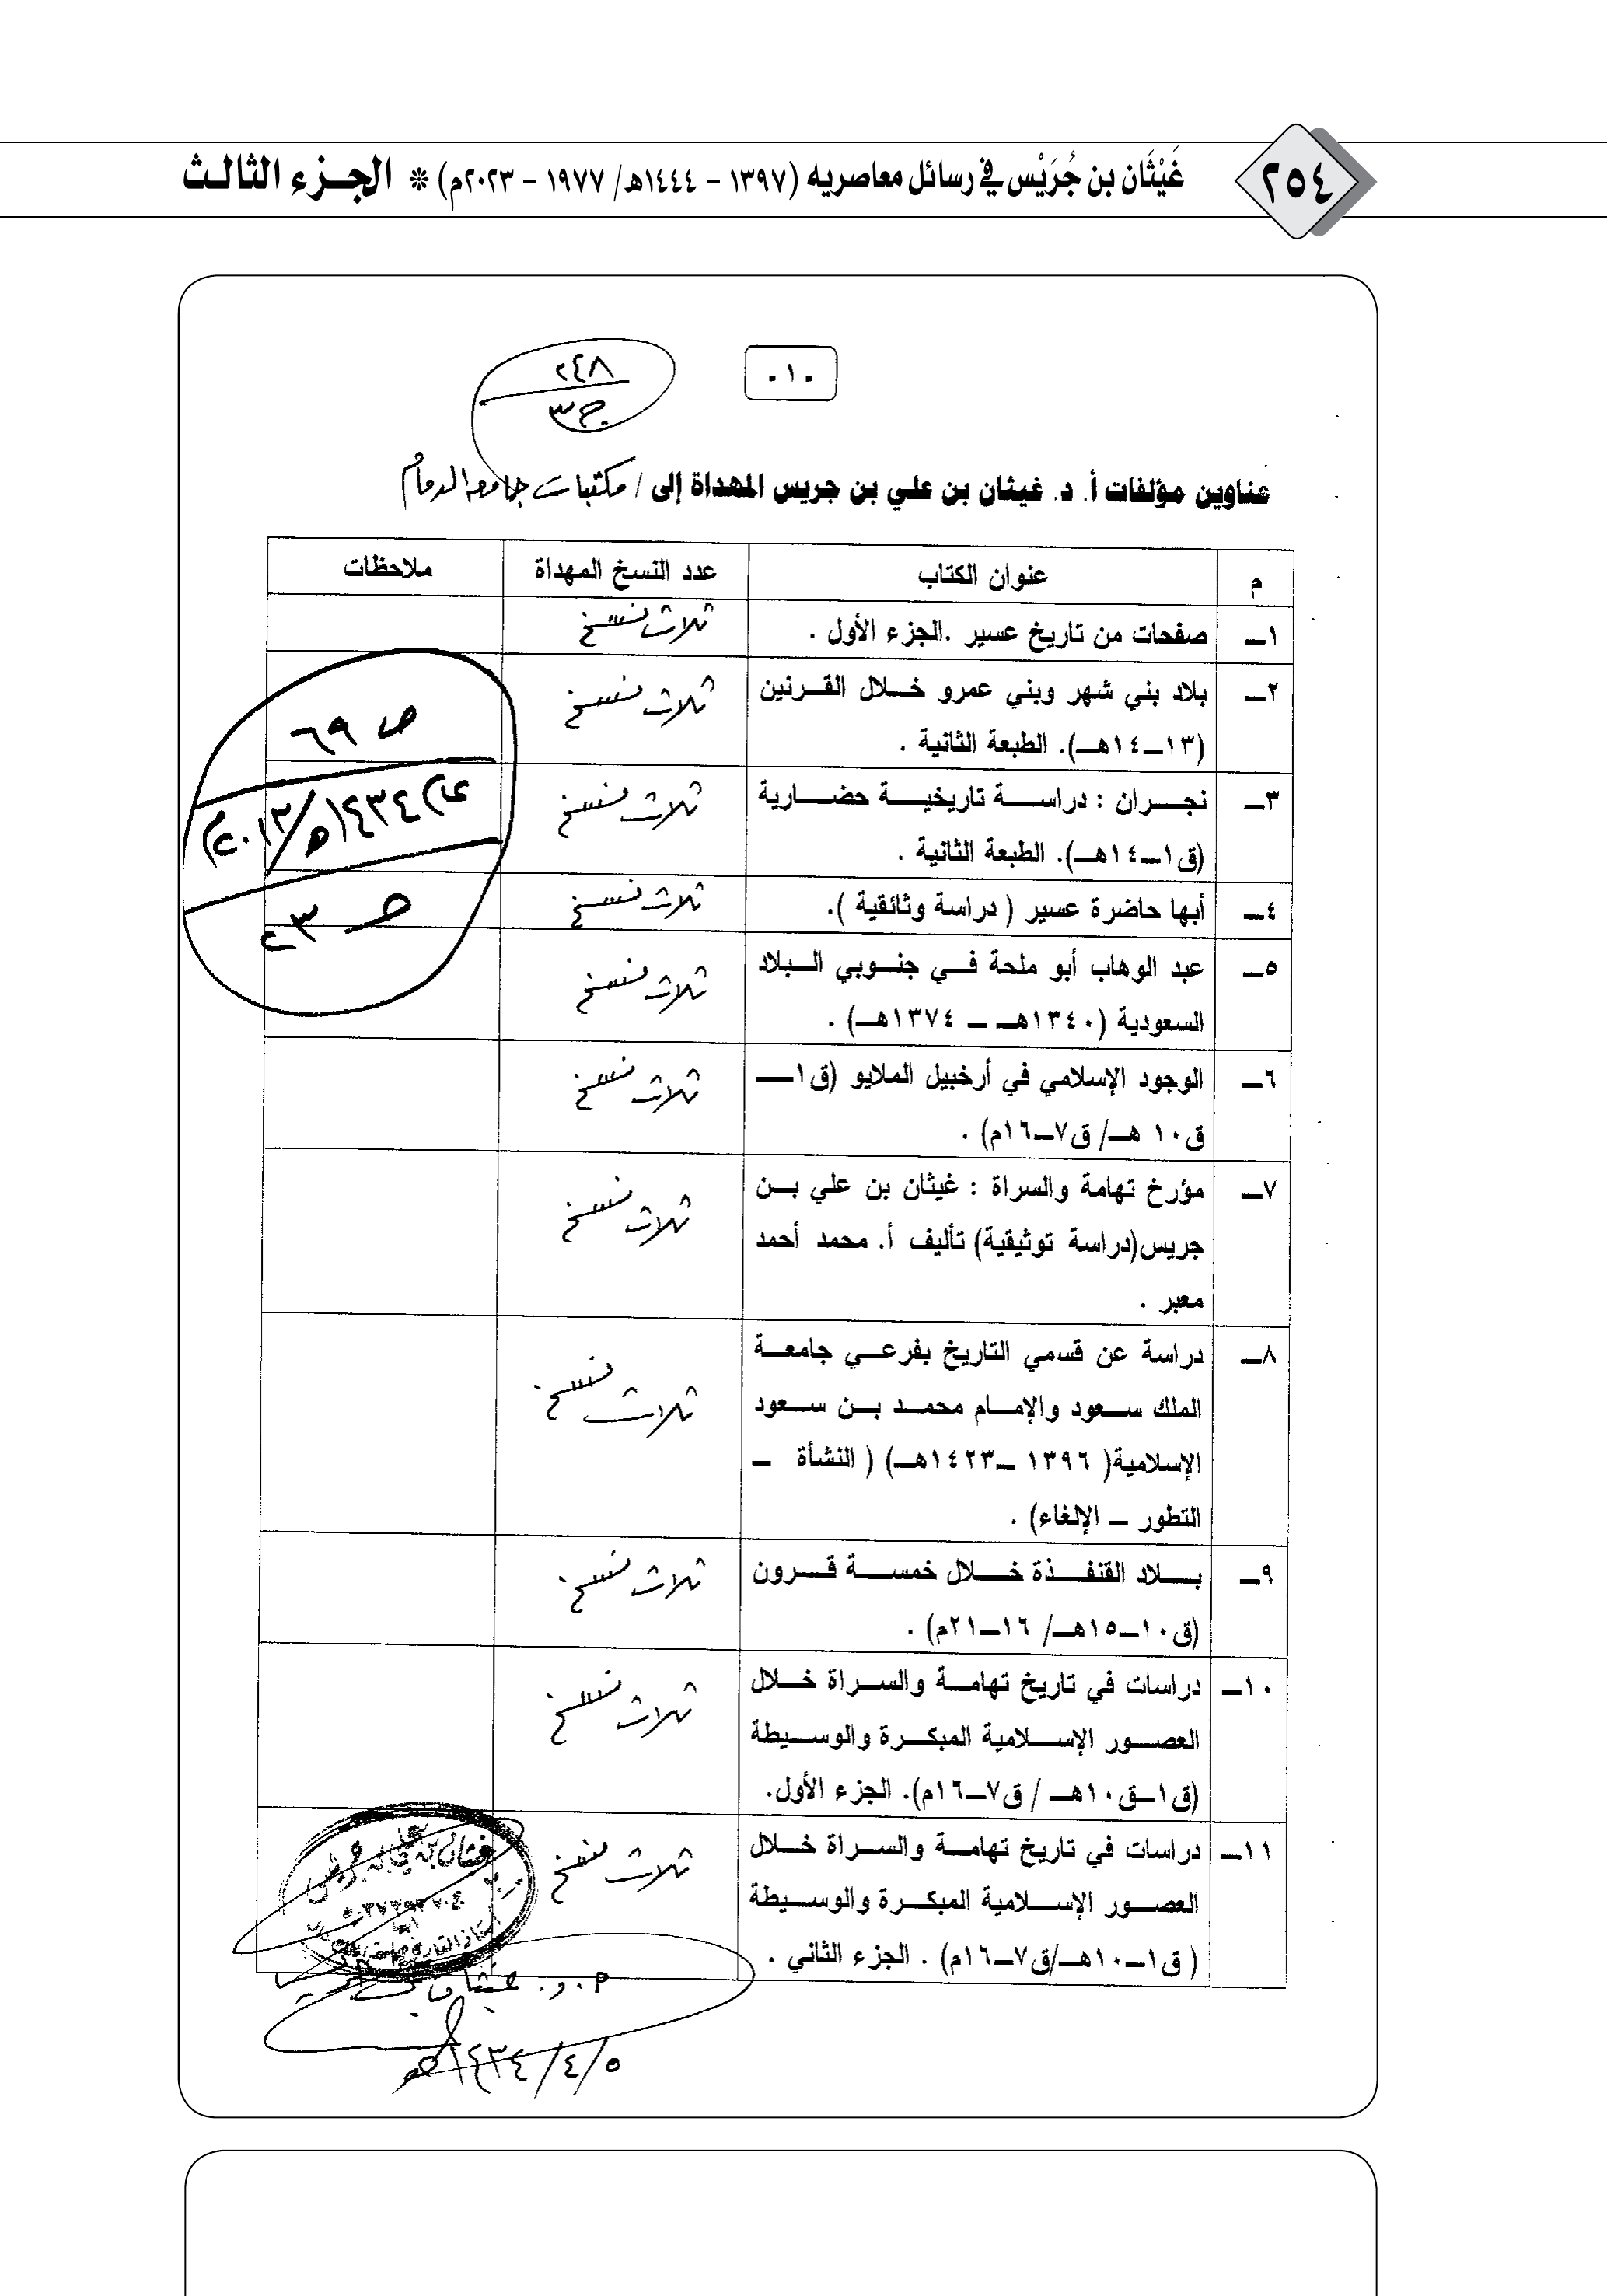 ٢٥٤
غَيْثَان بن جُرَيْس في رسائل معاصريه (١٣٩٧ - ١٤٤٤هـ/ ١٩٧٧ - ٢٠٢٣م) * الجزء الثالث
٢٤٨
ج٣
- ١ -
عناوين مؤلفات أ. د. غيثان بن علي بن جريس المهداة إلى / مكتبات جامعة الدمام
م عنوان الكتاب عدد النسخ المهداة ملاحظات
١ــ صفحات من تاريخ عسير .الجزء الأول . ثلاث نسخ
٢ــ بلاد بني شهر وبني عمرو خلال القرنين ثلاث نسخ
(١٣ــ١٤هـ). الطبعة الثانية .
ص ٦٩
٣ــ نجران : دراسة تاريخية حضارية ثلاث نسخ
(ق١ــ١٤هـ). الطبعة الثانية .
عام ١٤٣٤هـ/٢٠١٣م
٤ــ أبها حاضرة عسير ( دراسة وثائقية ). ثلاث نسخ
حـ ٢٣
٥ــ عبد الوهاب أبو ملحة في جنوبي البلاد ثلاث نسخ
السعودية (١٣٤٠هـ ــ ١٣٧٤هـ) .
٦ــ الوجود الإسلامي في أرخبيل الملايو (ق١ــ ثلاث نسخ
ق١٠ هـ/ ق٧ــ١٦م) .
٧ــ مؤرخ تهامة والسراة : غيثان بن علي بن ثلاث نسخ
جريس(دراسة توثيقية) تأليف أ. محمد أحمد
معبر .
٨ــ دراسة عن قسمي التاريخ بفرعي جامعة ثلاث نسخ
الملك سعود والإمام محمد بن سعود
الإسلامية( ١٣٩٦ ــ١٤٢٣هـ) ( النشأة ــ
التطور ــ الإلغاء) .
٩ــ بلاد القنفذة خلال خمسة قرون ثلاث نسخ
(ق١٠ــ١٥هـ/ ١٦ــ٢١م) .
١٠ــ دراسات في تاريخ تهامة والسراة خلال ثلاث نسخ
العصور الإسلامية المبكرة والوسيطة
(ق١ــق١٠هـ / ق٧ــ١٦م). الجزء الأول.
١١ــ دراسات في تاريخ تهامة والسراة خلال ثلاث نسخ
العصور الإسلامية المبكرة والوسيطة
( ق١ــ١٠هـ/ق٧ــ١٦م) . الجزء الثاني .
أ. د. غيثان بن
٥/ ٤/ ١٤٣٤هـ